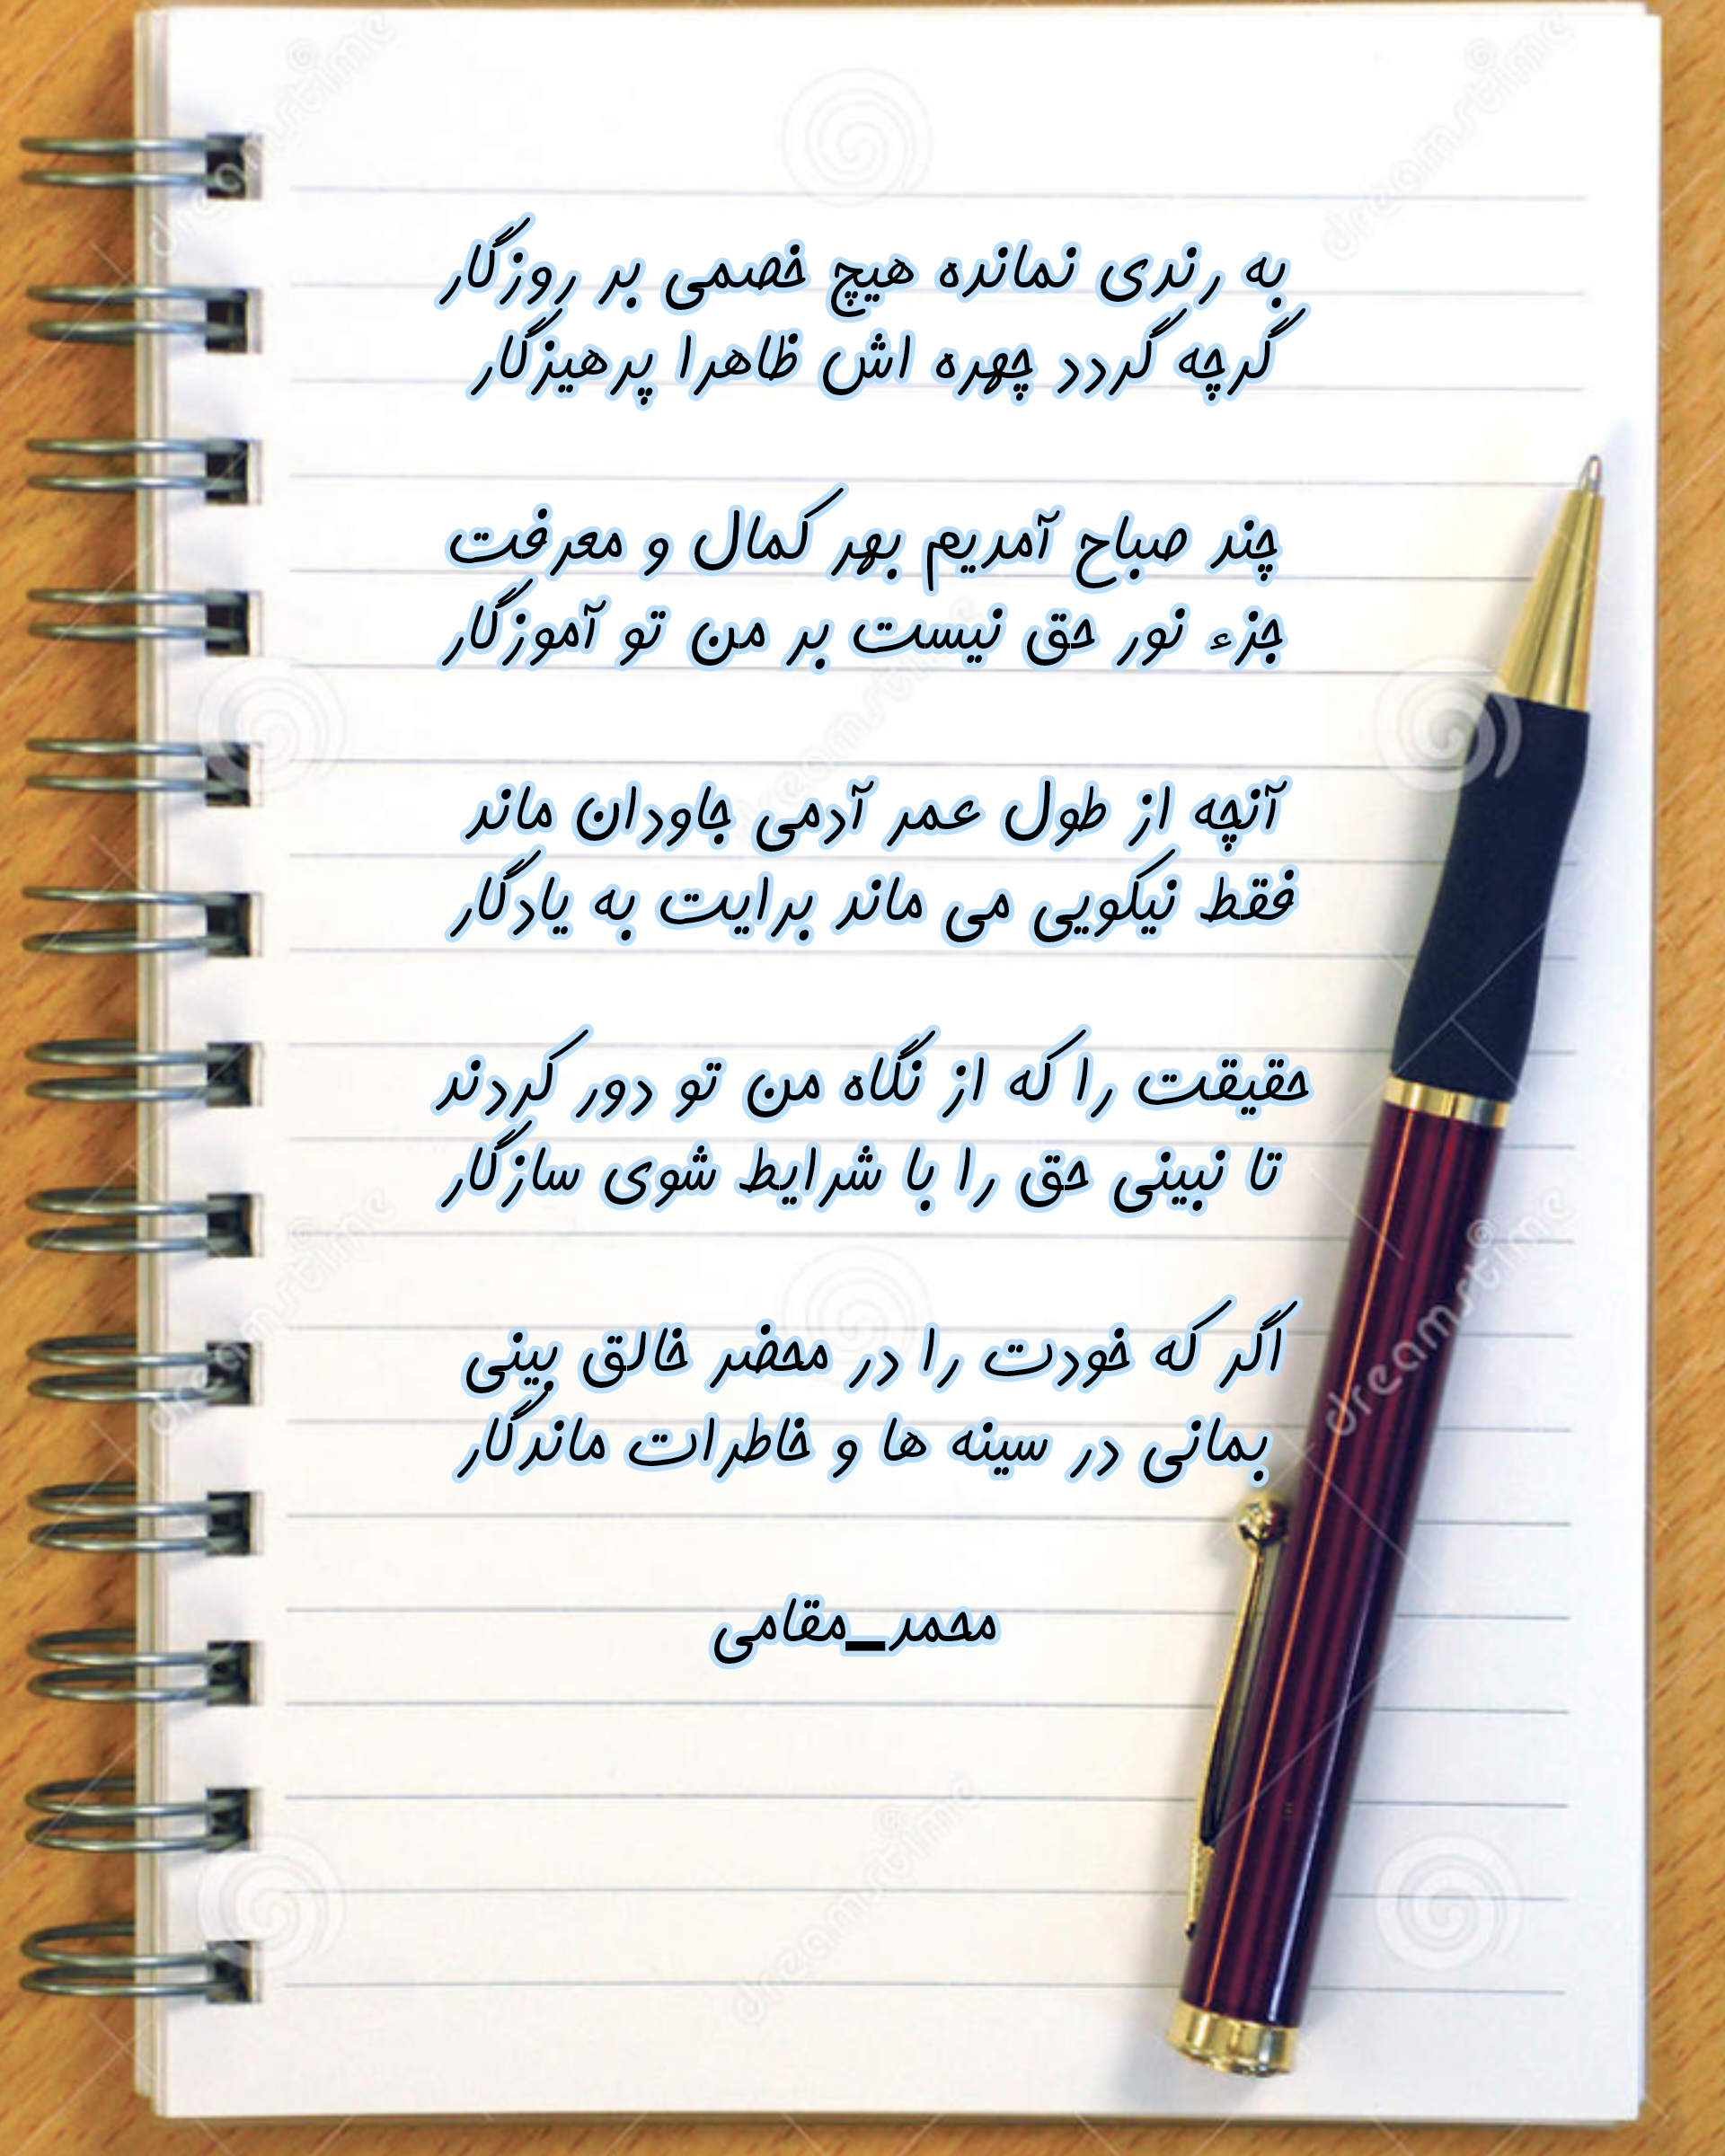 به رندی نمانده هیچ خصمی بر روزگار
گرچه گردد چهره اش ظاهرا پرهیزگار
چند صباح آمدیم بهر کمال و معرفت
جزء نور حق نیست بر من تو آموزگار
آنچه از طول عمر آدمی جاودان ماند
فقط نیکویی می ماند برایت به یادگار
حقیقت را که از نگاه من تو دور کردند
تا نبینی حق را با شرایط شوی سازگار
اگر که خودت را در محضر خالق بینی
بمانی در سینه ها و خاطرات ماندگار
محمد_مقامی
dreamstime
dreamstime
dreamstime
dreamstime
dreamstime
dreamstime